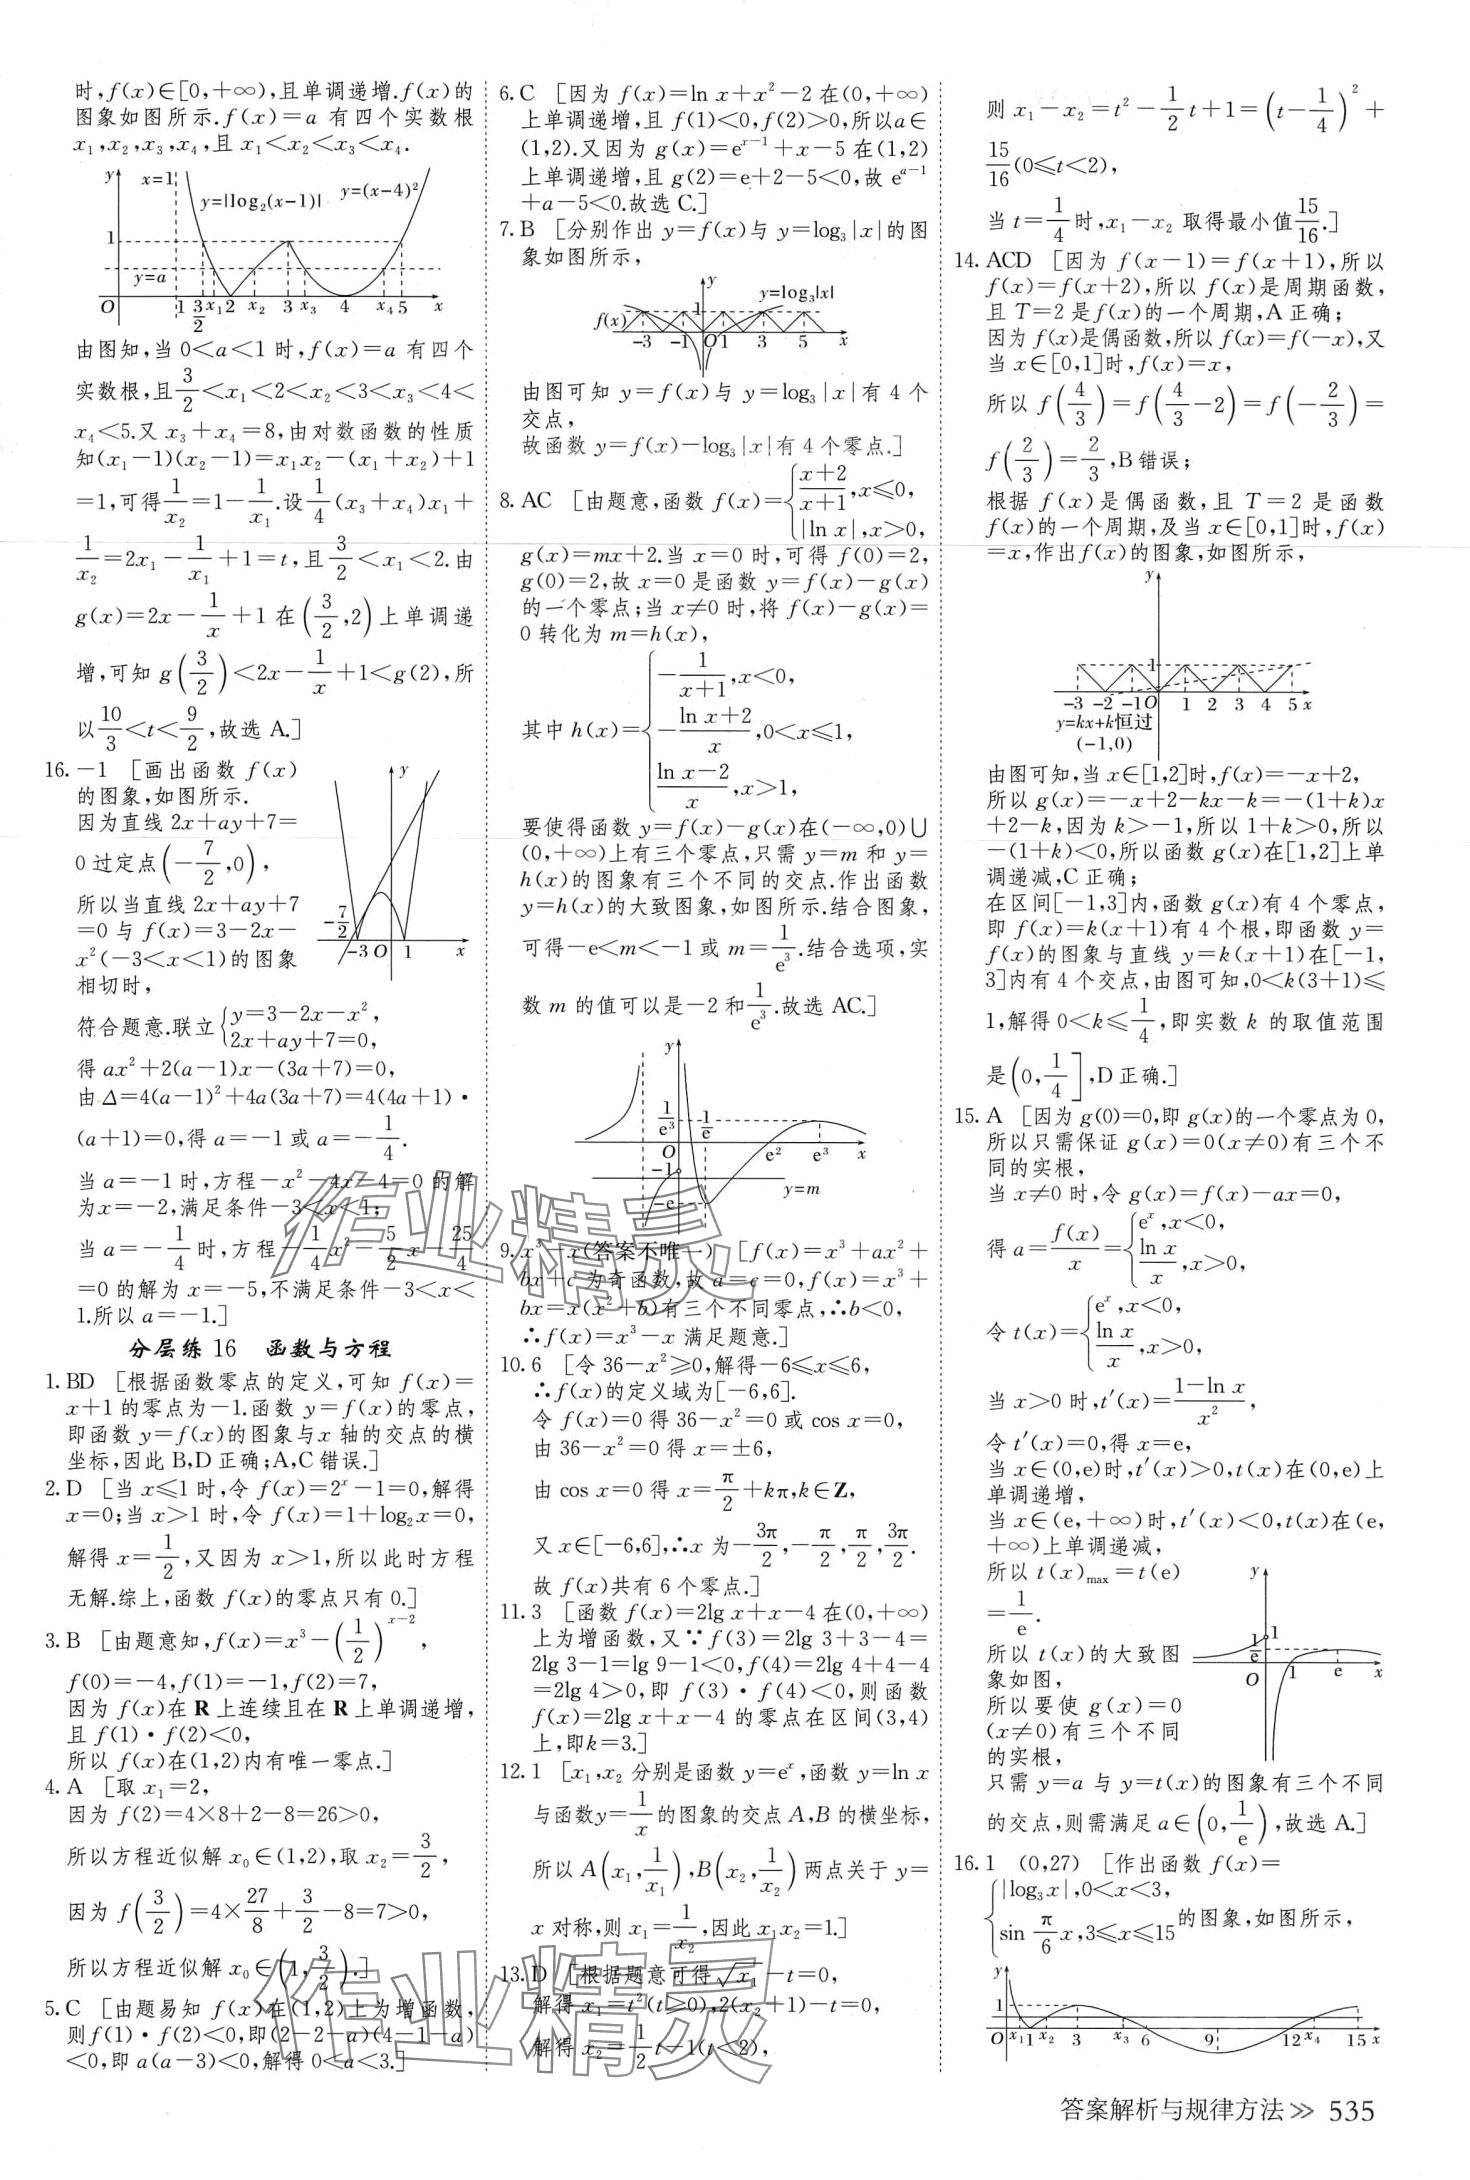 时,f(x)∈[0,+∞),且单调递增.f(x)的
图象如图所示.f(x)=a 有四个实数根
x₁,x₂,x₃,x₄,且 x₁<x₂<x₃<x₄.
y x=1 y=|log₂(x-1)| y=(x-4)²
1
y=a
O 1 3/2 x₁ 2 x₂ 3 x₃ 4 x₄ 5 x
由图知,当 0<a<1 时,f(x)=a 有四个
实数根,且3/2<x₁<2<x₂<3<x₃<4<
x₄<5.又 x₃+x₄=8,由对数函数的性质
知(x₁-1)(x₂-1)=x₁x₂-(x₁+x₂)+1
=1,可得1/x₂=1-1/x₁.设1/4(x₃+x₄)x₁+
1/x₂=2x₁-1/x₁+1=t,且3/2<x₁<2.由
g(x)=2x-1/x+1 在(3/2,2)上单调递
增,可知 g(3/2)<2x-1/x+1<g(2),所
以10/3<t<9/2,故选 A.]
16.-1 [画出函数 f(x)
的图象,如图所示.
因为直线 2x+ay+7=
0 过定点(-7/2,0),
所以当直线 2x+ay+7
=0 与 f(x)=3-2x-
x²(-3<x<1)的图象
相切时,
y
-7/2 -3 O 1 x
符合题意.联立{y=3-2x-x²,
2x+ay+7=0,
得 ax²+2(a-1)x-(3a+7)=0,
由 Δ=4(a-1)²+4a(3a+7)=4(4a+1)·
(a+1)=0,得 a=-1 或 a=-1/4.
当 a=-1 时,方程-x²-4x-4=0 的解
为x=-2,满足条件-3<x<1;
当 a=-1/4 时,方程-1/4x²-5/2x-25/4
=0 的解为 x=-5,不满足条件-3<x<
1.所以 a=-1.]
分层练 16 函数与方程
1.BD [根据函数零点的定义,可知 f(x)=
x+1 的零点为-1.函数 y=f(x)的零点,
即函数 y=f(x)的图象与 x 轴的交点的横
坐标,因此 B,D 正确;A,C 错误.]
2.D [当 x≤1 时,令 f(x)=2ˣ-1=0,解得
x=0;当 x>1 时,令 f(x)=1+log₂x=0,
解得 x=1/2,又因为 x>1,所以此时方程
无解.综上,函数 f(x)的零点只有 0.]
3.B [由题意知,f(x)=x³-(1/2)^(x-2),
f(0)=-4,f(1)=-1,f(2)=7,
因为 f(x)在 R 上连续且在 R 上单调递增,
且 f(1)·f(2)<0,
所以 f(x)在(1,2)内有唯一零点.]
4.A [取 x₁=2,
因为 f(2)=4×8+2-8=26>0,
所以方程近似解 x₀∈(1,2),取 x₂=3/2,
因为 f(3/2)=4×27/8+3/2-8=7>0,
所以方程近似解 x₀∈(1,3/2).]
5.C [由题易知 f(x)在(1,2)上为增函数,
则f(1)·f(2)<0,即(2-2-a)(4-1-a)
<0,即 a(a-3)<0,解得 0<a<3.]
6.C [因为 f(x)=ln x+x²-2 在(0,+∞)
上单调递增,且 f(1)<0,f(2)>0,所以a∈
(1,2).又因为 g(x)=eˣ⁻¹+x-5 在(1,2)
上单调递增,且 g(2)=e+2-5<0,故 eᵃ⁻¹
+a-5<0.故选C.]
7.B [分别作出 y=f(x)与 y=log₃|x|的图
象如图所示,
y
f(x) 1 y=log₃|x|
-3 -1 O 1 3 5 x
由图可知 y=f(x)与 y=log₃|x|有 4 个
交点,
故函数 y=f(x)-log₃|x|有 4 个零点.]
8.AC [由题意,函数 f(x)={(x+2)/(x+1),x≤0,
|ln x|,x>0,
g(x)=mx+2.当 x=0 时,可得 f(0)=2,
g(0)=2,故 x=0 是函数 y=f(x)-g(x)
的一个零点;当 x≠0 时,将 f(x)-g(x)=
0 转化为 m=h(x),
其中 h(x)={-1/(x+1),x<0,
-(ln x+2)/x,0<x≤1,
(ln x-2)/x,x>1,
要使得函数 y=f(x)-g(x)在(-∞,0)∪
(0,+∞)上有三个零点,只需 y=m 和 y=
h(x)的图象有三个不同的交点.作出函数
y=h(x)的大致图象,如图所示.结合图象,
可得-e<m<-1 或 m=1/e³.结合选项,实
数 m 的值可以是-2 和1/e³.故选 AC.]
y
1/e³ 1/e
O e² e³ x
-1
y=m
-e
9.x³-x(答案不唯一) [f(x)=x³+ax²+
bx+c 为奇函数,故 a=c=0,f(x)=x³+
bx=x(x²+b)有三个不同零点,∴b<0,
∴f(x)=x³-x 满足题意.]
10.6 [令 36-x²≥0,解得-6≤x≤6,
∴f(x)的定义域为[-6,6].
令 f(x)=0 得 36-x²=0 或 cos x=0,
由 36-x²=0 得 x=±6,
由 cos x=0 得 x=π/2+kπ,k∈Z,
又 x∈[-6,6],∴x 为-3π/2,-π/2,π/2,3π/2.
故 f(x)共有 6 个零点.]
11.3 [函数 f(x)=2lg x+x-4 在(0,+∞)
上为增函数,又∵f(3)=2lg 3+3-4=
2lg 3-1=lg 9-1<0,f(4)=2lg 4+4-4
=2lg 4>0,即 f(3)·f(4)<0,则函数
f(x)=2lg x+x-4 的零点在区间(3,4)
上,即k=3.]
12.1 [x₁,x₂ 分别是函数 y=eˣ,函数 y=ln x
与函数y=1/x的图象的交点 A,B 的横坐标,
所以 A(x₁,1/x₁),B(x₂,1/x₂)两点关于 y=
x 对称,则 x₁=1/x₂,因此 x₁x₂=1.]
13.D [根据题意可得√x₁-t=0,
解得 x₁=t²(t≥0),2(x₂+1)-t=0,
解得 x₂=1/2t-1(t<2),
则 x₁-x₂=t²-1/2t+1=(t-1/4)²+
15/16(0≤t<2),
当 t=1/4时,x₁-x₂ 取得最小值15/16.]
14.ACD [因为 f(x-1)=f(x+1),所以
f(x)=f(x+2),所以 f(x)是周期函数,
且 T=2 是f(x)的一个周期,A正确;
因为 f(x)是偶函数,所以 f(x)=f(-x),又
当 x∈[0,1]时,f(x)=x,
所以 f(4/3)=f(4/3-2)=f(-2/3)=
f(2/3)=2/3,B 错误;
根据 f(x)是偶函数,且 T=2 是函数
f(x)的一个周期,及当 x∈[0,1]时,f(x)
=x,作出 f(x)的图象,如图所示,
y
1
-3 -2 -1 O 1 2 3 4 5 x
y=kx+k恒过
(-1,0)
由图可知,当 x∈[1,2]时,f(x)=-x+2,
所以 g(x)=-x+2-kx-k=-(1+k)x
+2-k,因为 k>-1,所以 1+k>0,所以
-(1+k)<0,所以函数 g(x)在[1,2]上单
调递减,C 正确;
在区间[-1,3]内,函数 g(x)有 4 个零点,
即 f(x)=k(x+1)有 4 个根,即函数 y=
f(x)的图象与直线 y=k(x+1)在[-1,
3]内有 4 个交点,由图可知,0<k(3+1)≤
1,解得 0<k≤1/4,即实数 k 的取值范围
是(0,1/4],D 正确.]
15.A [因为 g(0)=0,即 g(x)的一个零点为 0,
所以只需保证 g(x)=0(x≠0)有三个不
同的实根,
当 x≠0 时,令 g(x)=f(x)-ax=0,
得 a=f(x)/x={eˣ,x<0,
ln x/x,x>0,
令 t(x)={eˣ,x<0,
ln x/x,x>0,
当 x>0 时,t′(x)=(1-ln x)/x²,
令 t′(x)=0,得 x=e,
当 x∈(0,e)时,t′(x)>0,t(x)在(0,e)上
单调递增,
当 x∈(e,+∞)时,t′(x)<0,t(x)在(e,
+∞)上单调递减,
所以 t(x)max=t(e)
=1/e.
所以 t(x)的大致图
象如图,
所以要使 g(x)=0
(x≠0)有三个不同
的实根,
y
1/e 1
O 1 e x
只需 y=a 与 y=t(x)的图象有三个不同
的交点,则需满足 a∈(0,1/e),故选 A.]
16.1 (0,27) [作出函数 f(x)=
{|log₃x|,0<x<3,
sin π/6 x,3≤x≤15的图象,如图所示,
y
1
O x₁ 1 x₂ 3 x₃ 6 9 12 x₄ 15 x
答案解析与规律方法 >> 535
作业精灵
作业精灵